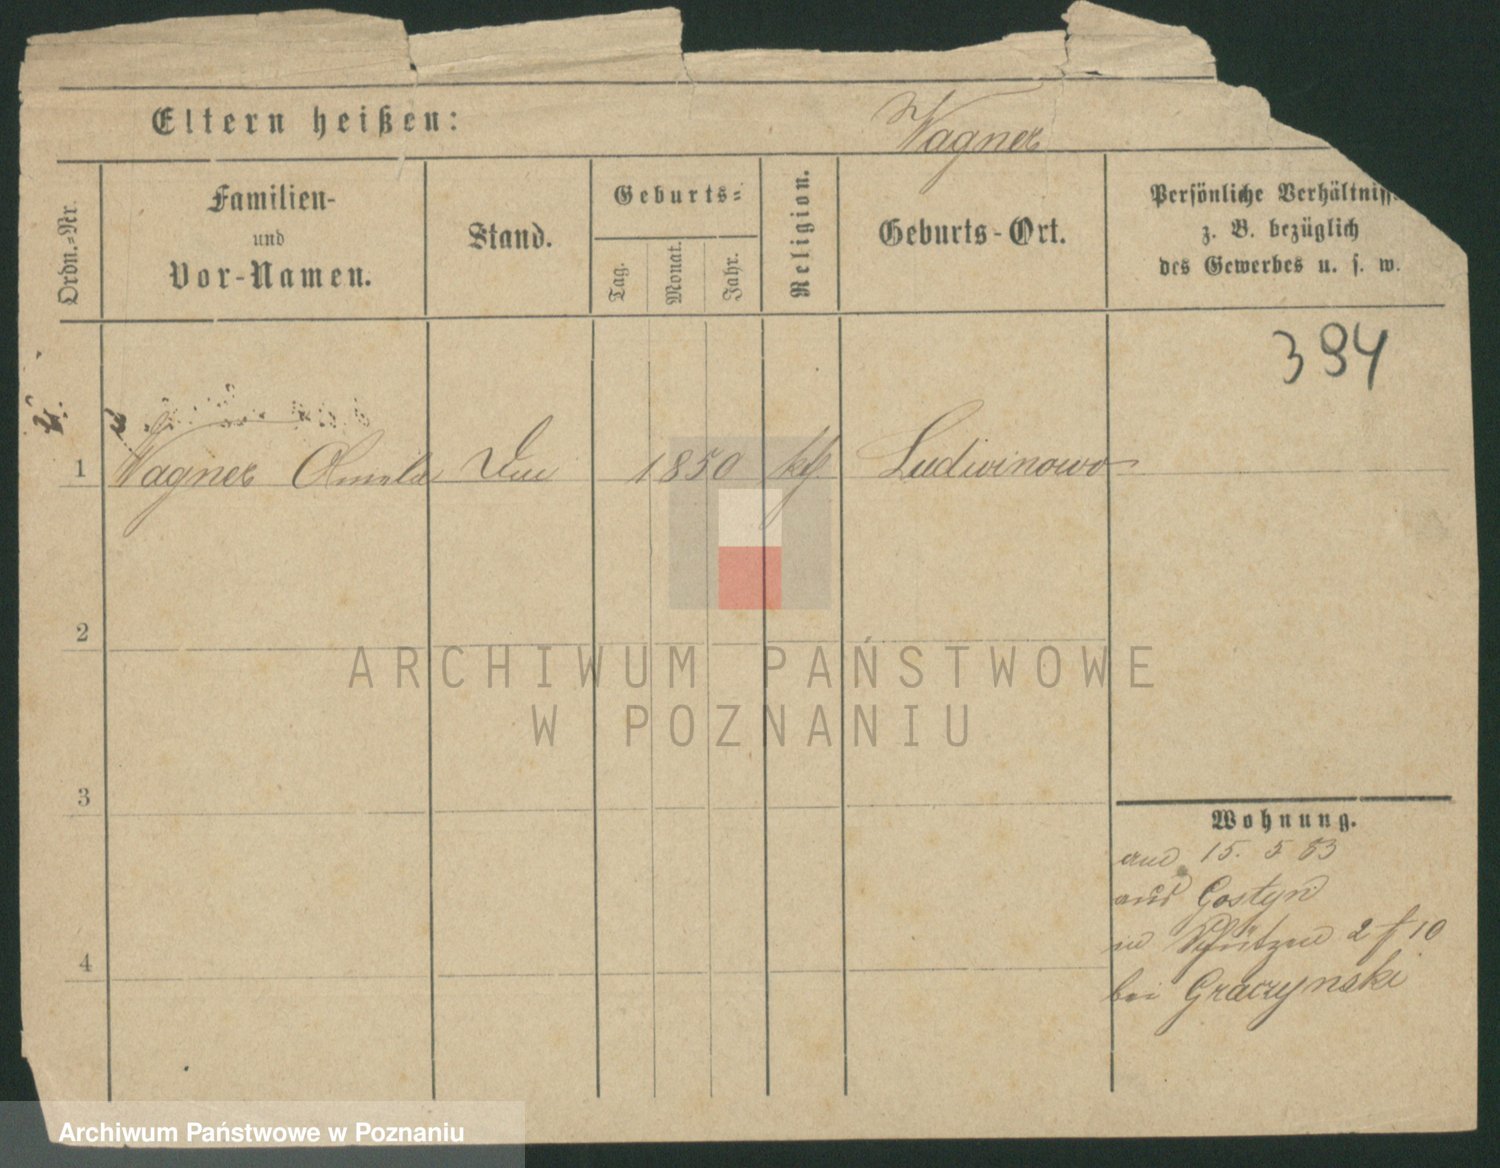 Eltern heißen:
Wagner
Ordn.=Nr.
Familien-
und
Vor-Namen.
Stand.
Geburts=
Tag.
Monat.
Jahr.
Religion.
Geburts-Ort.
Persönliche Verhältniss
z. B. bezüglich
des Gewerbes u. s. w.
394
1 Wagner Amalie 1850 kth. Ludwinowo
2
3
4
Wohnung.
15. 5 83
aus Gostyn
in Schützen 2 f 10
bei Graczynski
ARCHIWUM PAŃSTWOWE
W POZNANIU
Archiwum Państwowe w Poznaniu